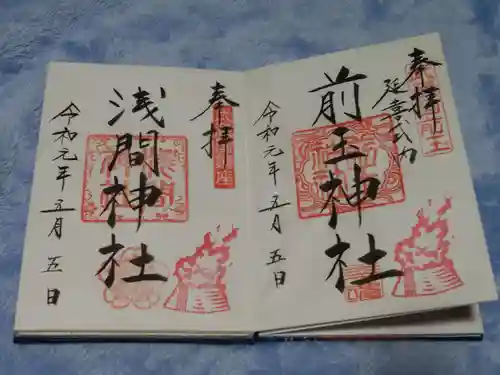 奉拝
延喜式内
前玉神社
令和元年五月五日
奉拝
浅間神社
令和元年五月五日